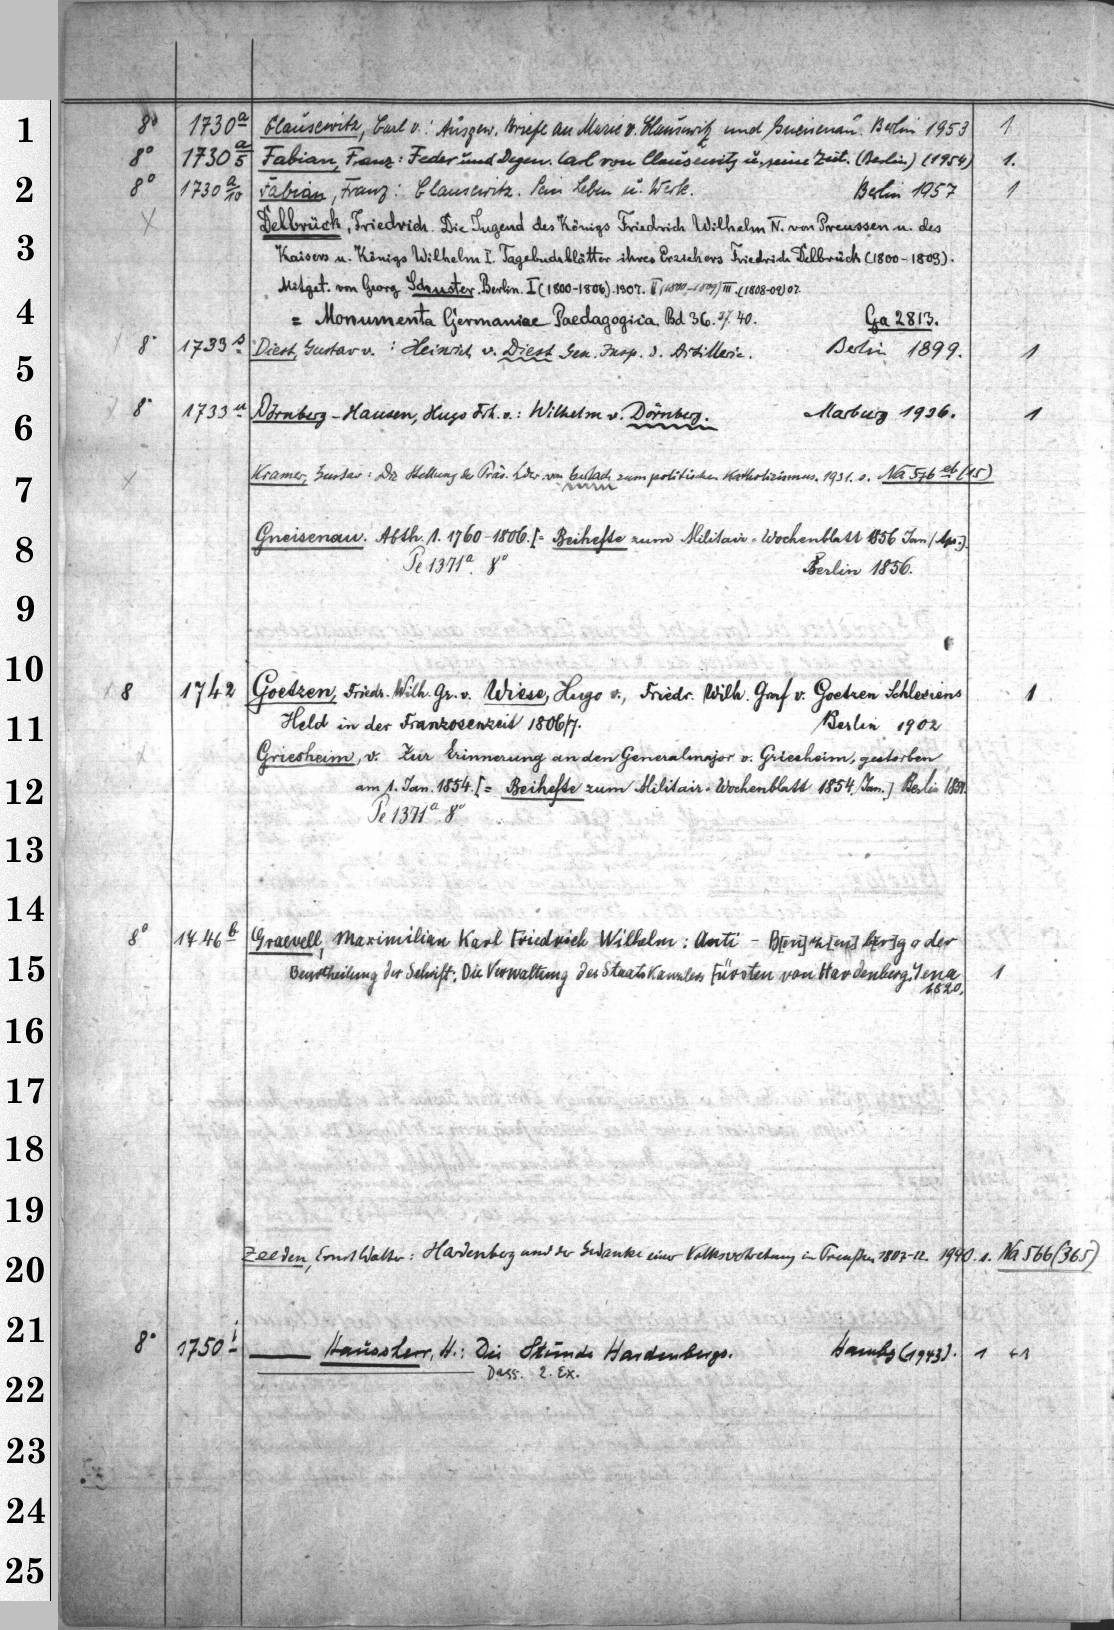 1
8° 1730 a Clausewitz, Carl v.: Ausgew. Briefe an Marie v. Clausewitz und Gneisenau. Berlin 1953 1
8° 1730 a/5 Fabian, Franz: Feder und Degen. Carl von Clausewitz u. seine Zeit. (Berlin) (1954) 1.
2
8° 1730 a/10 Fabian, Franz: Clausewitz. Sein Leben u. Werk. Berlin 1957 1
Delbrück, Friedrich. Die Jugend des Königs Friedrich Wilhelm IV. von Preussen u. des
3
Kaisers u. Königs Wilhelm I. Tagebuchblätter ihres Erziehers Friedrich Delbrück (1800-1809).
Mitget. von Georg Schuster. Berlin. I (1800-1806). 1907. II III. (1808-09) 07.
4
= Monumenta Germaniae Paedagogica. Bd 36. 37. 40. Ga 2813.
8° 1733 s Diest, Gustav v.: Heinrich v. Diest Gen. Insp. d. Artillerie. Berlin 1899. 1
5
8° 1733 u Dörnberg-Hausen, Hugo Frh. v.: Wilhelm v. Dörnberg. Marburg 1936. 1
6
Kramer, Gustav: Die Stellung des Präs. Ldw. von Gerlach zum politischen Katholizismus. 1931. s. Na 576 eb (15)
7
Gneisenau. Abth. 1. 1760-1806. [= Beihefte zum Militair-Wochenblatt 1856 Jan/Apr.].
8
Pe 1371 a. 8° Berlin 1856.
9
10
8 1742 Goetzen, Friedr. Wilh. Gr. v. Wiese, Hugo v., Friedr. Wilh. Graf v. Goetzen Schlesiens 1
11
Held in der Franzosenzeit 1806/7. Berlin 1902
Griesheim, v. Zur Erinnerung an den Generalmajor v. Griesheim, gestorben
12
am 1. Jan. 1854. [= Beihefte zum Militair-Wochenblatt 1854, Jan.] Berlin 1854.
Pe 1371 a. 8°
13
14
8° 1746 b Graevell, Maximilian Karl Friedrich Wilhelm: Anti - B[en]z[en]b[er]g oder
15
Beurtheilung der Schrift: Die Verwaltung des Staats Kanzlers Fürsten von Hardenberg. Jena 1
1820.
16
17
18
19
Zeeden, Ernst Walter: Hardenberg und der Gedanke einer Volksvertretung in Preußen 1807-12. 1940. s. Na 566 (365)
20
21
8° 1750 i Haussherr, H.: Die Stunde Hardenbergs. Hambg (1943). 1 +1
22
Dass. 2. Ex.
23
24
25